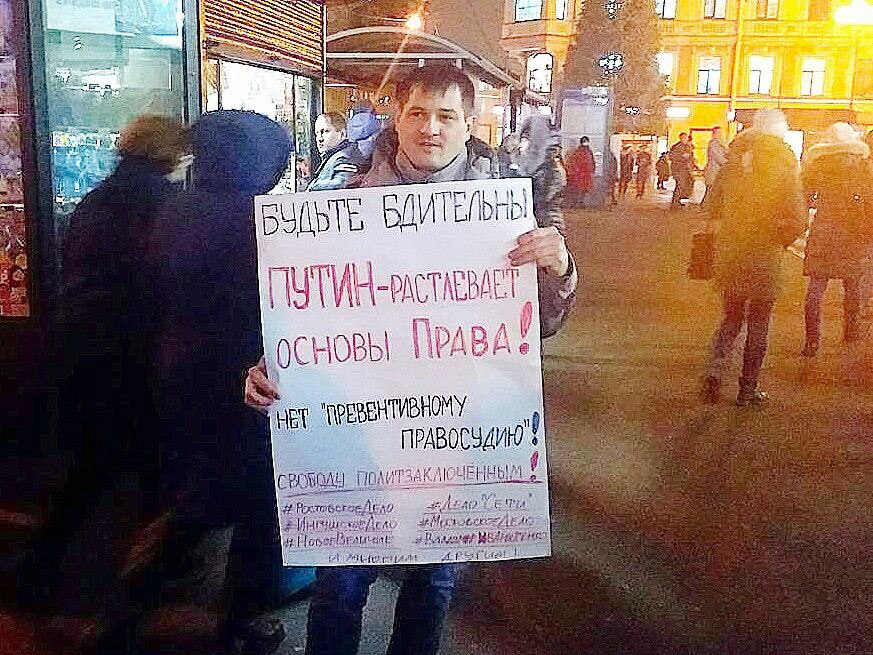 БУДЬТЕ БДИТЕЛЬНЫ
ПУТИН-РАСТЛЕВАЕТ
ОСНОВЫ ПРАВА!
НЕТ "ПРЕВЕНТИВНОМУ
ПРАВОСУДИЮ"!
СВОБОДУ ПОЛИТЗАКЛЮЧЕННЫМ!
#РостовскоеДело #Дело"Сети"
#ИнгушскоеДело #МосковскоеДело
#НовоеВеличие
И МНОГИМ ДРУГИМ!